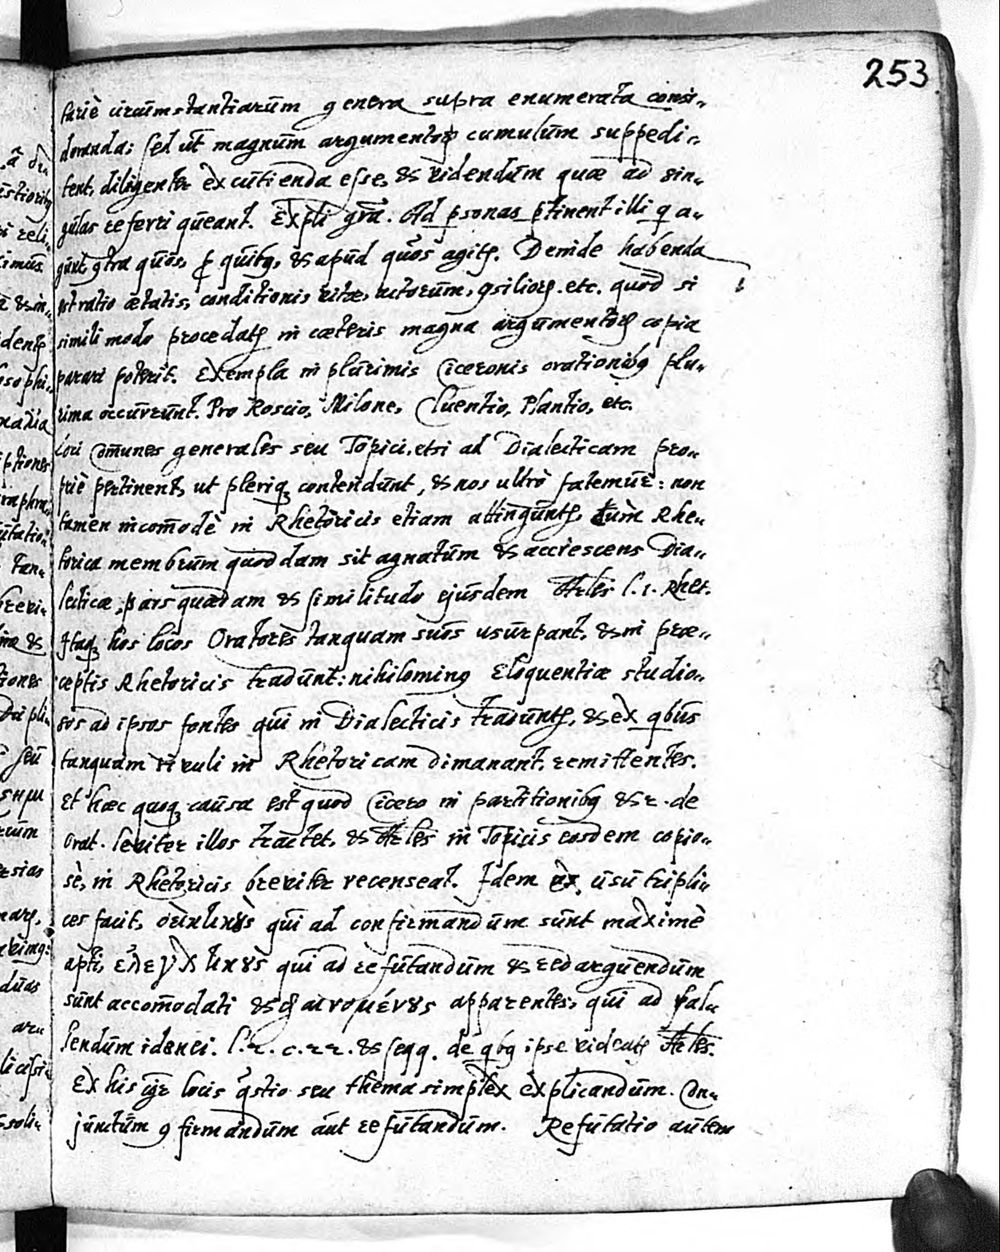 253
sariè circumstantiarum genera supra enumerata consi„
deranda; sed ut magnum argumentorꝝ cumulum suppedi„
tent, diligenter excutienda esse, & videndum quæ ad sin„
gulas referri queant. Expli grā. Ad psonas ptinent illi q a„
gunt, ꝯtra quos, ꝓ quibꝯ, & apud quos agitꝛ. Deinde habenda
est ratio ætatis, conditionis vitæ, ꝯsiliorꝝ. etc. quod si
simili modo procedatꝛ in cæteris magna argumentorꝝ copia
parari poterit. Exempla in plurimis Ciceronis orationibꝯ plu„
rima occurrunt. Pro Roscio, Milone, Cluentio, Plantio, etc.
Loci Com̄unes generales seu Topici, etsi ad Dialecticam pro„
priè pertinent, ut pleriqꝫ contendunt, & nos ultrò fatemur: non
tamen incom̄odè in Rhetoricis etiam attinguntꝛ, cùm Rhe„
torica membrum quoddam sit agnatum & accrescens Dia„
lecticæ, pars quædam & similitudo ejusdem Ar̄les l. 1. Rhet.
Itaqꝫ hos locos Oratores tanquam suos usurpant, & in præ„
ceptis Rhetoricis tradunt: nihilominꝯ Eloquentiæ studio„
sos ad ipsos fontes qui in Dialecticis traduntꝛ, & ex qbus
tanquam rivuli in Rhetoricam dimanant, remittentes.
Et hæc quoqꝫ causa est quod Cicero in partitionibꝯ & 2. de
Orat. leviter illos tractet, & Ar̄les in Topicis eosdem copio„
sè, in Rhetoricis breviter recenseat. Idem ex usu tripli„
ces facit, δεικτικȣ̀ς qui ad confirmandum sunt maximè
apti, ἐλεγχτικȣ̀ς qui ad refutandum & redarguendum
sunt accom̄odati & φαινομένȣς apparentes, qui ad fal„
lendum idonei. l. 2. c. 22. & seqq. de qbꝯ ipse videatꝛ Ar̄les.
Ex his igr locis qstio seu thema simplex explicandum. Con„
junctum ꝯfirmandum aut refutandum. Refutatio autem